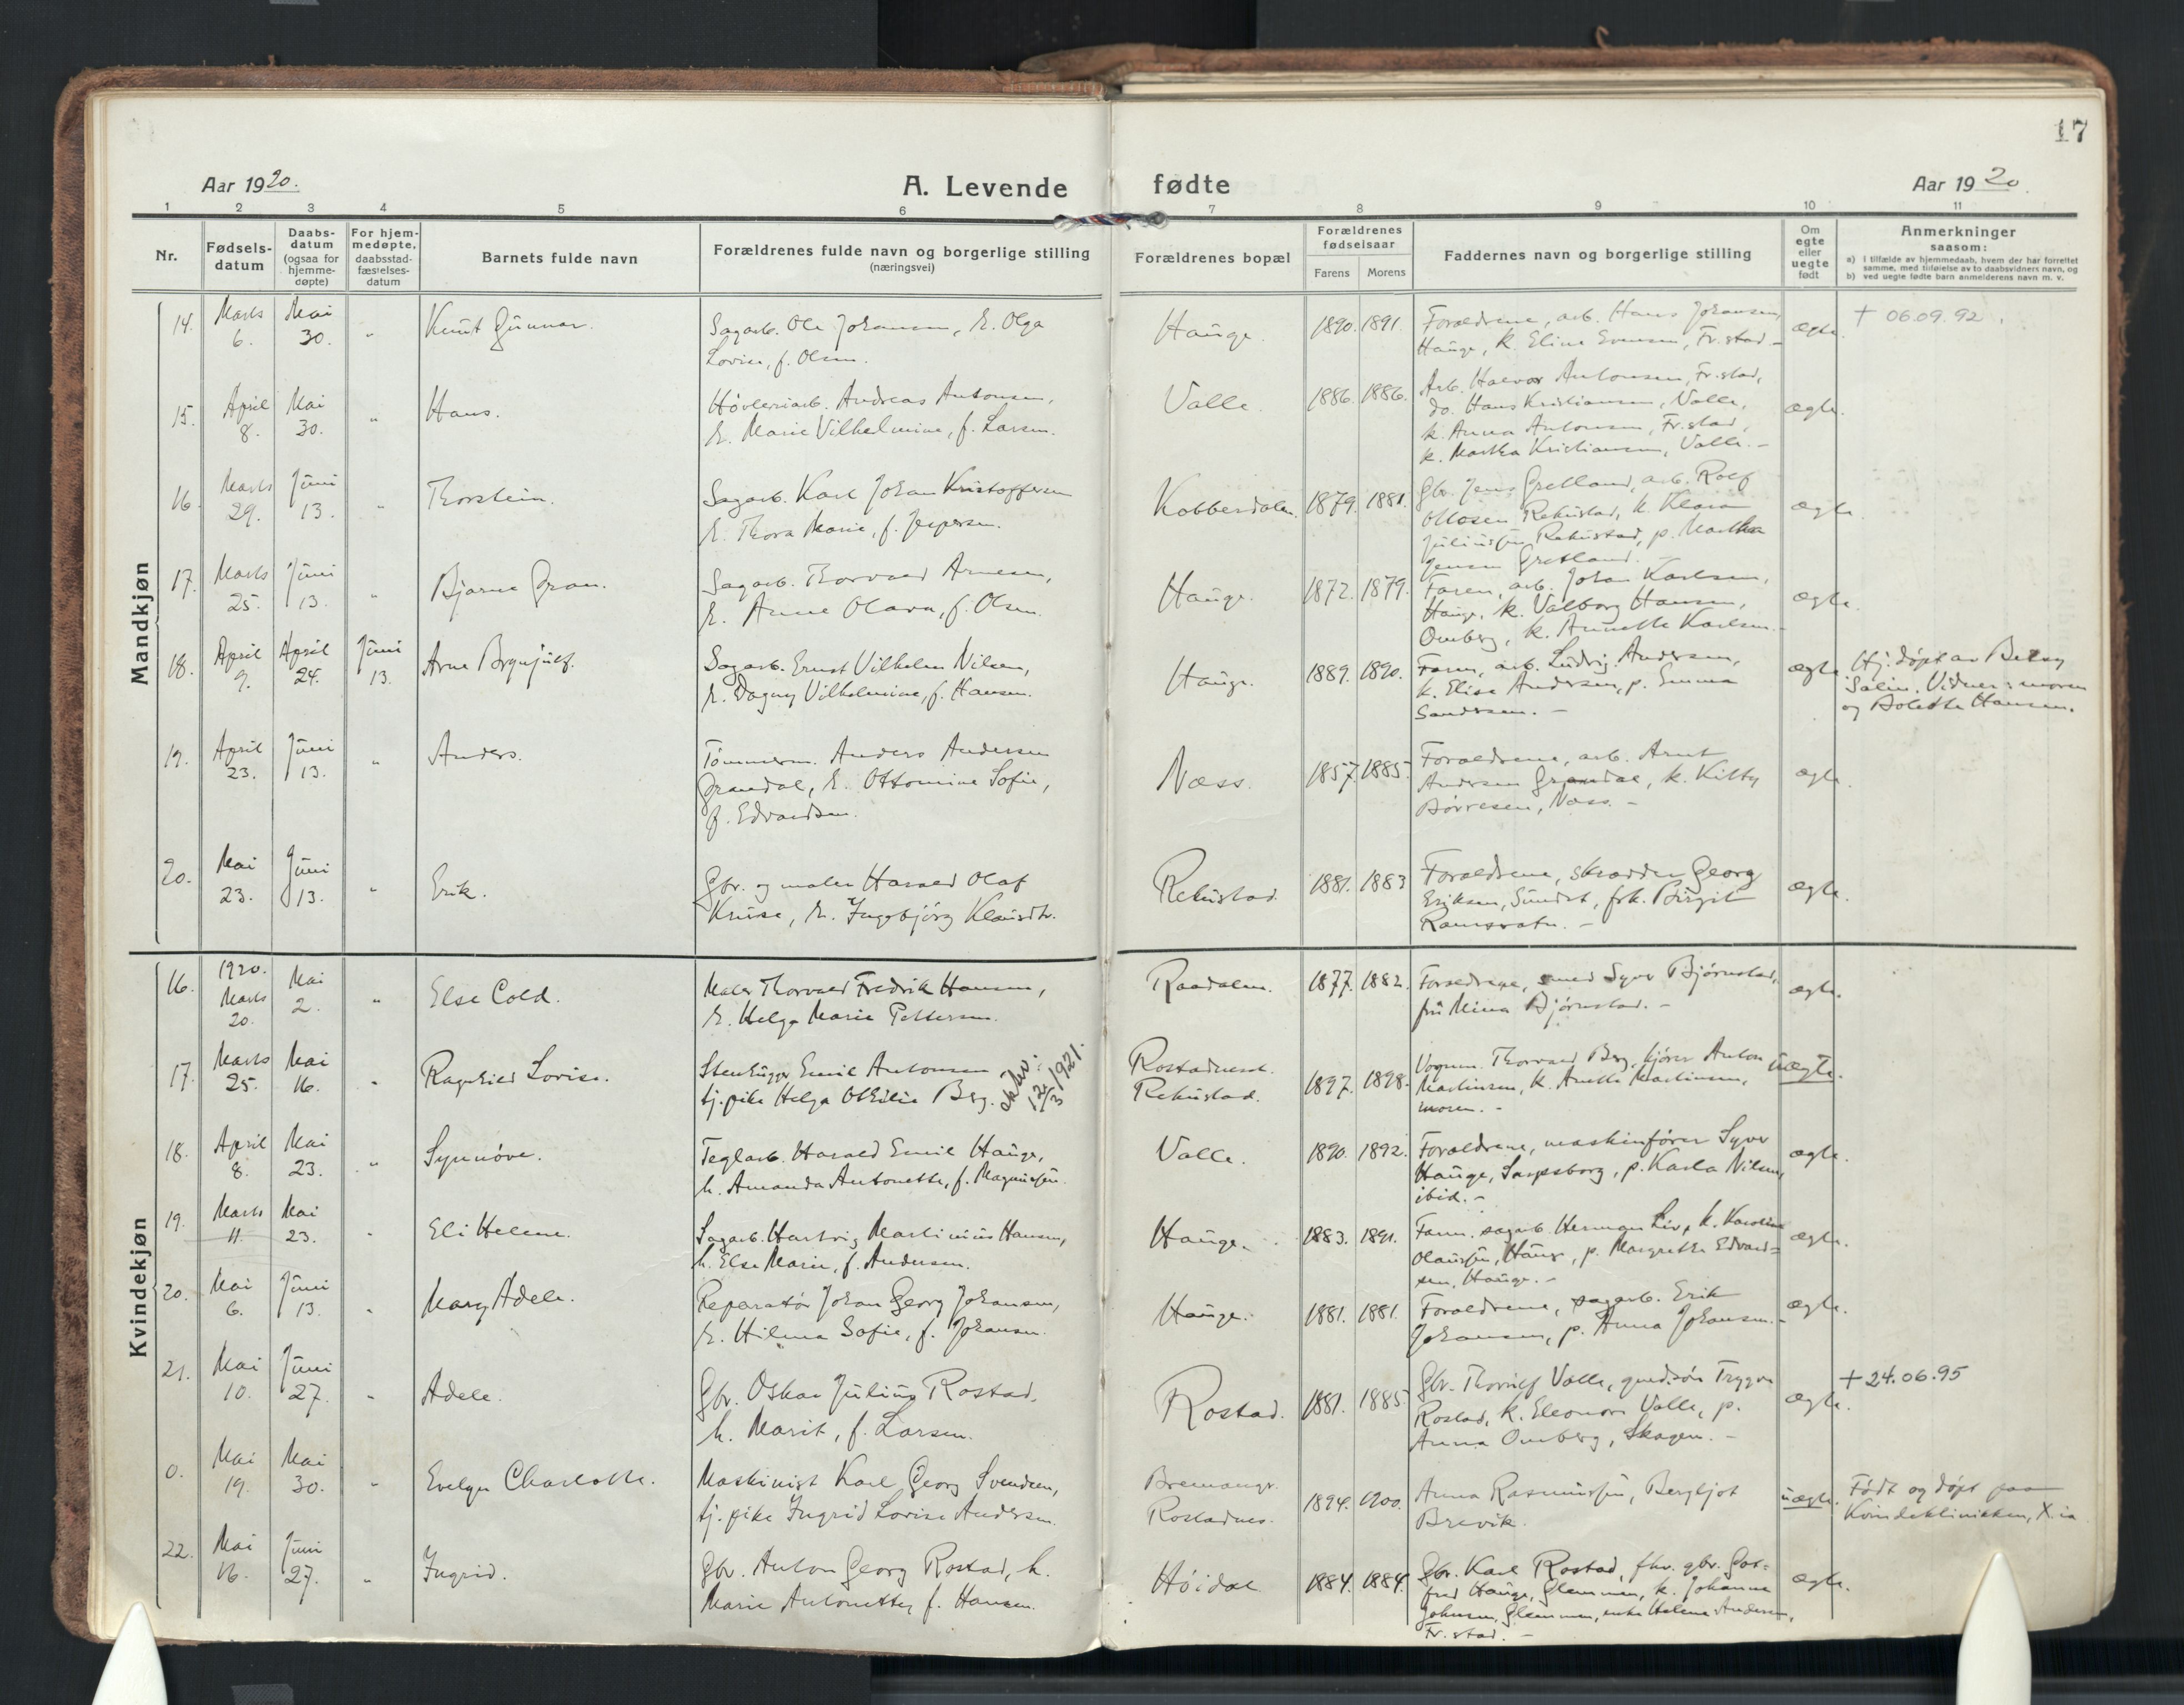 17
Aar 1920.
A. Levende fødte
Aar 1920.
1 2 3 4 5 6 7 8 9 10 11
Nr.
Fødsels-
datum
Daabs-
datum
(ogsaa for
hjemme-
døpte)
For hjem-
medøpte,
daabsstad-
fæstelses-
datum
Barnets fulde navn
Forældrenes fulde navn og borgerlige stilling
(næringsvei)
Forældrenes bopæl
Forældrenes
fødselsaar
Farens Morens
Faddernes navn og borgerlige stilling
Om
egte
eller
uegte
født
Anmerkninger
saasom:
a) i tilfælde av hjemmedaab, hvem der har forrettet
samme, med tilføielse av to daabsvidners navn, og
b) ved uegte fødte barn anmelderens navn m. v.
Mandkjøn
14. Marts 6. Mai 30. " Knut Gunnar.
Sagarb. Ole Johansen, h. Olga
Lovise, f. Olsen.
Hauge. 1890. 1891.
Forældrene, arb. Hans Johansen,
Hauge, k. Eline Evensen, Fr.stad.-
ægte.
+ 06.09.92.
15. April 8. Mai 30. " Hans.
Høvleriarb. Andreas Antonsen,
h. Marie Vilhelmine, f. Larsen.
Valle. 1886. 1886.
Arb. Halvor Antonsen, Fr.stad,
do. Hans Kristiansen, Valle,
k. Anna Antonsen, Fr.stad,
k. Martha Kristiansen, Valle.-
ægte.
16. Marts 29. Juni 13. " Thorstein.
Sagarb. Karl Johan Kristoffersen
h. Thora Marie, f. Jespersen.
Kobberdalen. 1879. 1881.
Gbr. Jens Gretland, arb. Rolf
Ottosen Rekustad, k. Klara
Juliussen Rekustad, p. Martha
Jensen Gretland.-
ægte.
17. Marts 25. Juni 13. " Bjarne Gran.
Sagarb. Thorvald Arnesen,
h. Anne Olava, f. Olsen.
Hauge. 1872. 1879.
Faren, arb. Johan Karlsen,
Hauge, k. Valborg Hansen,
Omberg, k. Annette Karlsen.-
ægte.
18. April 9. April 24. Juni 13. Arne Brynjulf.
Sagarb. Ernst Vilhelm Nilsen,
h. Dagny Vilhelmine, f. Hansen.
Hauge. 1889. 1890.
Faren, arb. Ludvig Andersen,
k. Elise Andersen, p. Emma
Sandersen.-
ægte.
Hj. døpt av Betsy
Salin. Vidner: moren
og Bolette Hansen.
19. April 23. Juni 13. " Anders.
Tømmerm. Anders Andersen
Grandal, h. Ottomine Sofie,
f. Edvardsen.
Næss. 1857. 1885.
Forældrene, arb. Arnt
Andersen Grandal, k. Kitty
Børresen, Næss.-
ægte.
20. Mai 23. Juni 13. " Erik.
Gbr. og maler Harald Olaf
Kruse, h. Ingebjørg Klausdtr.
Rekustad. 1881. 1883
Forældrene, skrædder Georg
Eriksen, Sundet, frk. Birgit
Ramsvatn.-
ægte.
Kvindekjøn
16. 1920. Marts 20. Mai 2. " Else Cold.
Maler Thorvald Fredrik Hansen,
h. Helga Marie Pettersen.
Raadalen. 1877. 1882.
Forældrene, smed Syver Bjørnstad,
fru Mina Bjørnstad.-
ægte.
17. Marts 25. Mai 16. " Ragnhild Lovise.
Stenhugger Emil Antonsen
tj. pike Helga Othilie Berg.
12/3 1921.
Rostadnest.
Rekustad. 1897. 1898.
Vognm. Thorvald Berg, kjører Anton
Martinsen, k. Anette Martinsen,
moren.-
uægte.
18. April 8. Mai 23. " Synnøve.
Teglarb. Harald Emil Hauge,
h. Amanda Antonette, f. Magnussen.
Valle. 1890. 1892.
Forældrene, maskinfører Syver
Hauge, Sarpsborg, p. Karla Nilsen,
ibid.-
ægte.
19. Marts 11. Mai 23. " Eli Helene.
Sagarb. Hartvig Martinius Hansen,
h. Else Marie, f. Andersen.
Hauge. 1883. 1891.
Faren, sagarb. Herman Liv, k. Karoline
Olaussen, Hauge, p. Margrethe Edvard=
sen, Hauge.-
ægte.
20. Mai 6. Juni 13. " Mary Adele.
Reparatør Johan Georg Johansen,
h. Hilma Sofie, f. Johansen.
Hauge. 1881. 1881.
Forældrene, sagarb. Erik
Johansen, p. Anna Johansen.-
ægte.
21. Mai 10. Juni 27. " Adele.
Gbr. Oskar Julius Rostad,
h. Marit, f. Larsen.
Rostad. 1881. 1885.
Gbr. Thorulf Valle, grdsøn Trygve
Rostad, k. Eleonore Valle, p.
Anna Omberg, Skagen.-
ægte.
+ 24.06.95
0. Mai 19. Mai 30. " Evelyn Charlotte.
Maskinist Karl Georg Svendsen,
tj. pike Ingrid Lovise Andersen.
Bremanger.
Rostadnes. 1894. 1900.
Anna Rasmussen, Bergljot
Brevik.
uægte.
Født og døpt paa
Kvindeklinikken, X.ia
22. Mai 16. Juni 27. " Ingrid.
Gbr. Anton Georg Rostad, h.
Marie Antonette, f. Hansen.
Høidal. 1884. 1884.
Gbr. Karl Rostad, fhv. gbr. Got=
fred Hauge, Glemmen, k. Johanne
Johnsen, Glemmen, enke Helene Andersen,
Fr.stad.-
ægte.